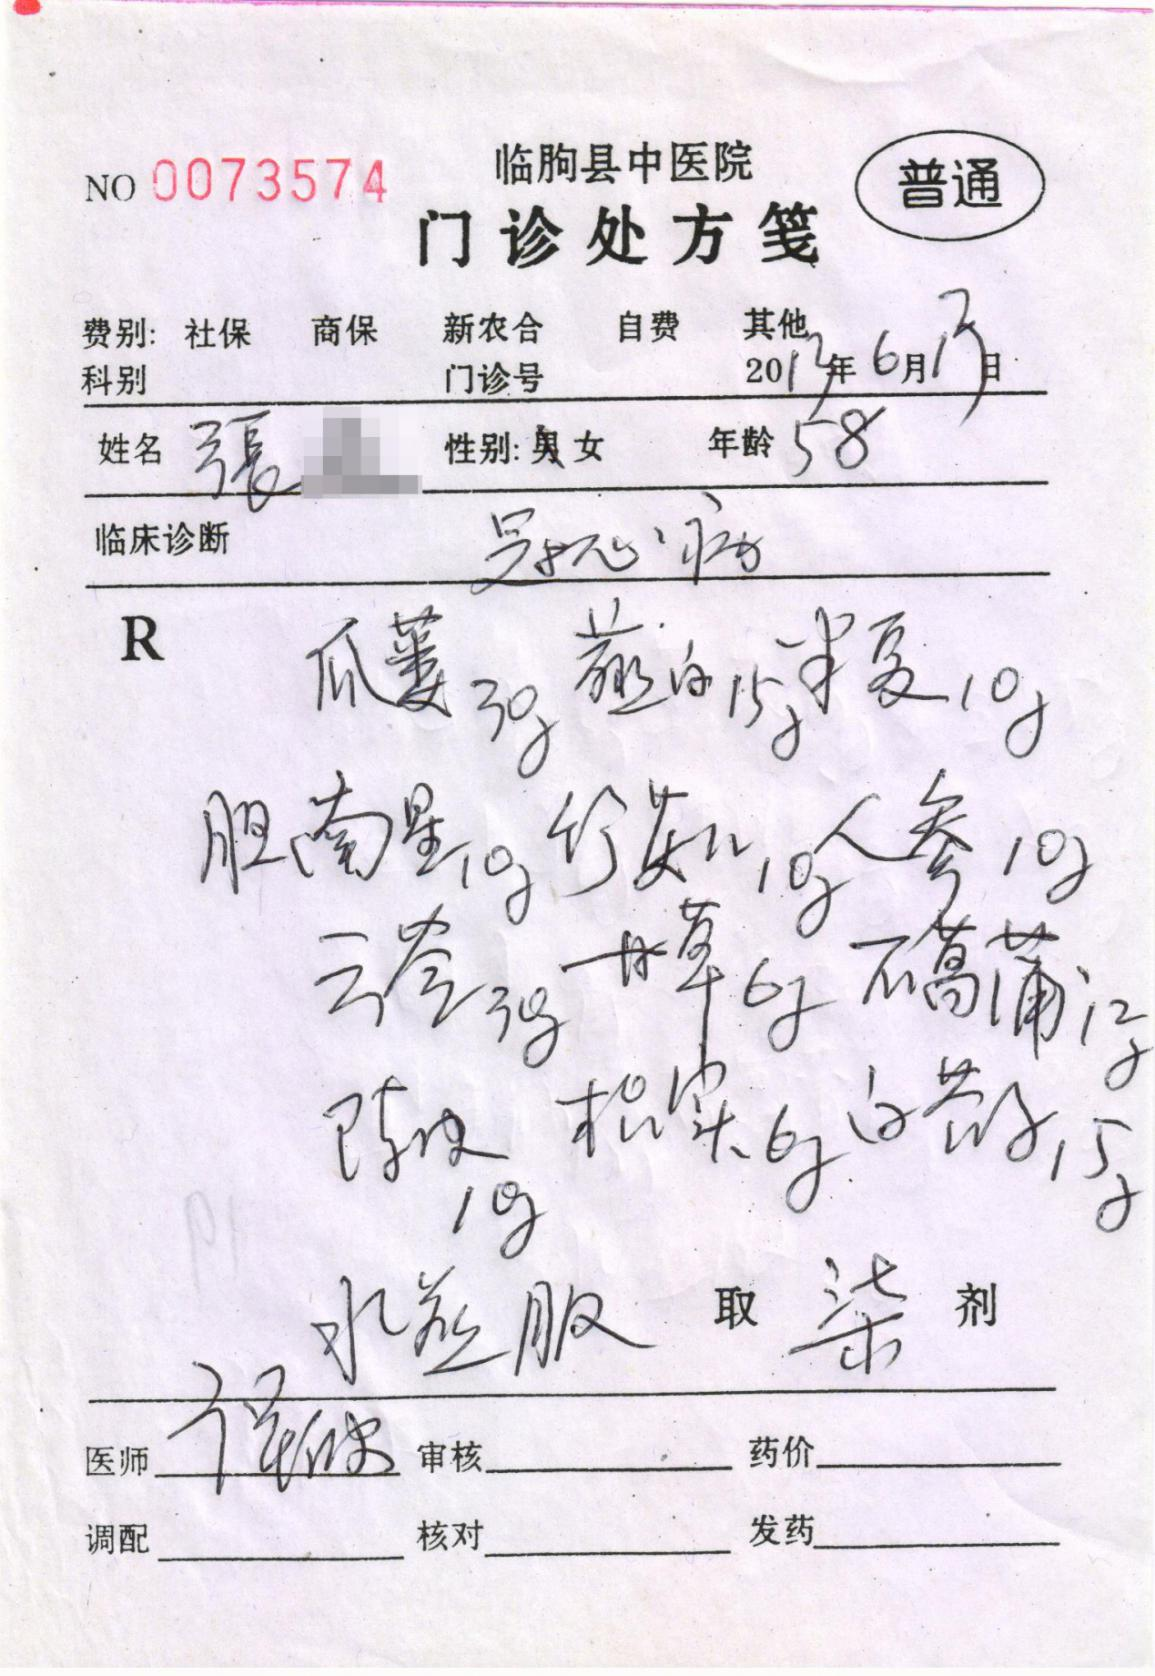 NO 0073574
临朐县中医院
普通
门诊处方笺
费别: 社保 商保 新农合 自费 其他
科别 门诊号 2013年6月13日
姓名 張 性别: 男 女 年龄 58
临床诊断 冠心病
R
瓜蒌30g 薤白15g 半夏10g
胆南星10g 竹茹10g 人参10g
云苓30g 甘草6g 石菖蒲12g
陈皮10g 枳实6g 白芥子15g
水煎服 取 柒 剂
医师 审核 药价
调配 核对 发药